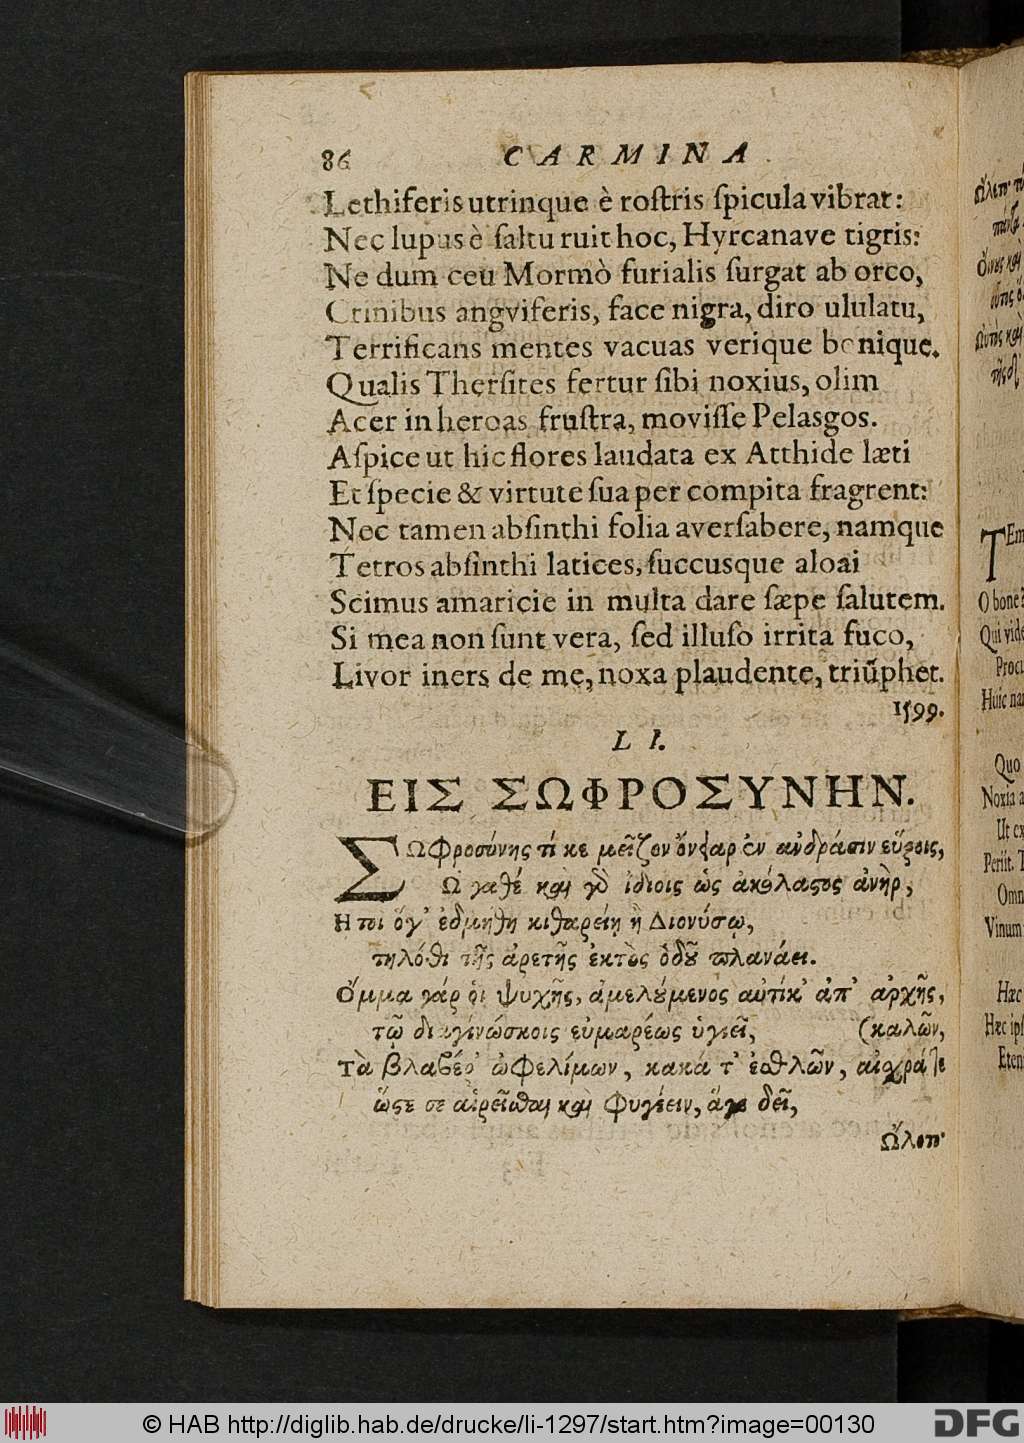 86 CARMINA
Lethiferis utrinque è rostris spicula vibrat:
Nec lupus è saltu ruit hoc, Hyrcanave tigris:
Ne dum ceu Mormò furialis surgat ab orco,
Crinibus angviferis, face nigra, diro ululatu,
Terrificans mentes vacuas verique bonique.
Qualis Thersites fertur sibi noxius, olim
Acer in heroas frustra, movisse Pelasgos.
Aspice ut hic flores laudata ex Atthide læti
Et specie & virtute sua per compita fragrent:
Nec tamen absinthi folia aversabere, namque
Tetros absinthi latices, succusque aloai
Scimus amaricie in multa dare sæpe salutem.
Si mea non sunt vera, sed illuso irrita fuco,
Livor iners de me, noxa plaudente, triũphet.
1599.
LI.
ΕΙΣ ΣΩΦΡΟΣΥΝΗΝ.
ΣΩφροσύνης τί κε μεῖζον ὄνειαρ ἐν ἀνδράσιν εὕροις,
Ὠ γαθέ καὶ γὸ ἰδίοις ὡς ἀκόλαστος ἀνὴρ,
Η τοι ὅγ' ἐδμήθη κιθαρείη ἢ Διονύσῳ,
τηλόθι τῆς ἀρετῆς ἐκτὸς ὁδοῦ πλανάει.
Ὄμμα γάρ οἱ ψυχῆς, ἀμελούμενος αὐτίκ' ἀπ' ἀρχῆς,
τῷ διαγινώσκοις εὐμαρέως ὑγιεῖ, (καλῶν,
Τὰ βλαβέρ' ὠφελίμων, κακά τ' ἐσθλῶν, αἰσχρά τε
ὥστε σε αἱρεῖσθαι καὶ φυγέειν, ἅγε δεῖ,
Ὤλεπ'
ὤλεπ'
Ὄινος καὶ
TEm
O bone
Qui vide
Procu
Huic nam
Quo
Noxia a
Ut ex
Periit. T
Omn
Vinum
Hæc
Hæc ips
Eteni
© HAB http://diglib.hab.de/drucke/li-1297/start.htm?image=00130
DFG